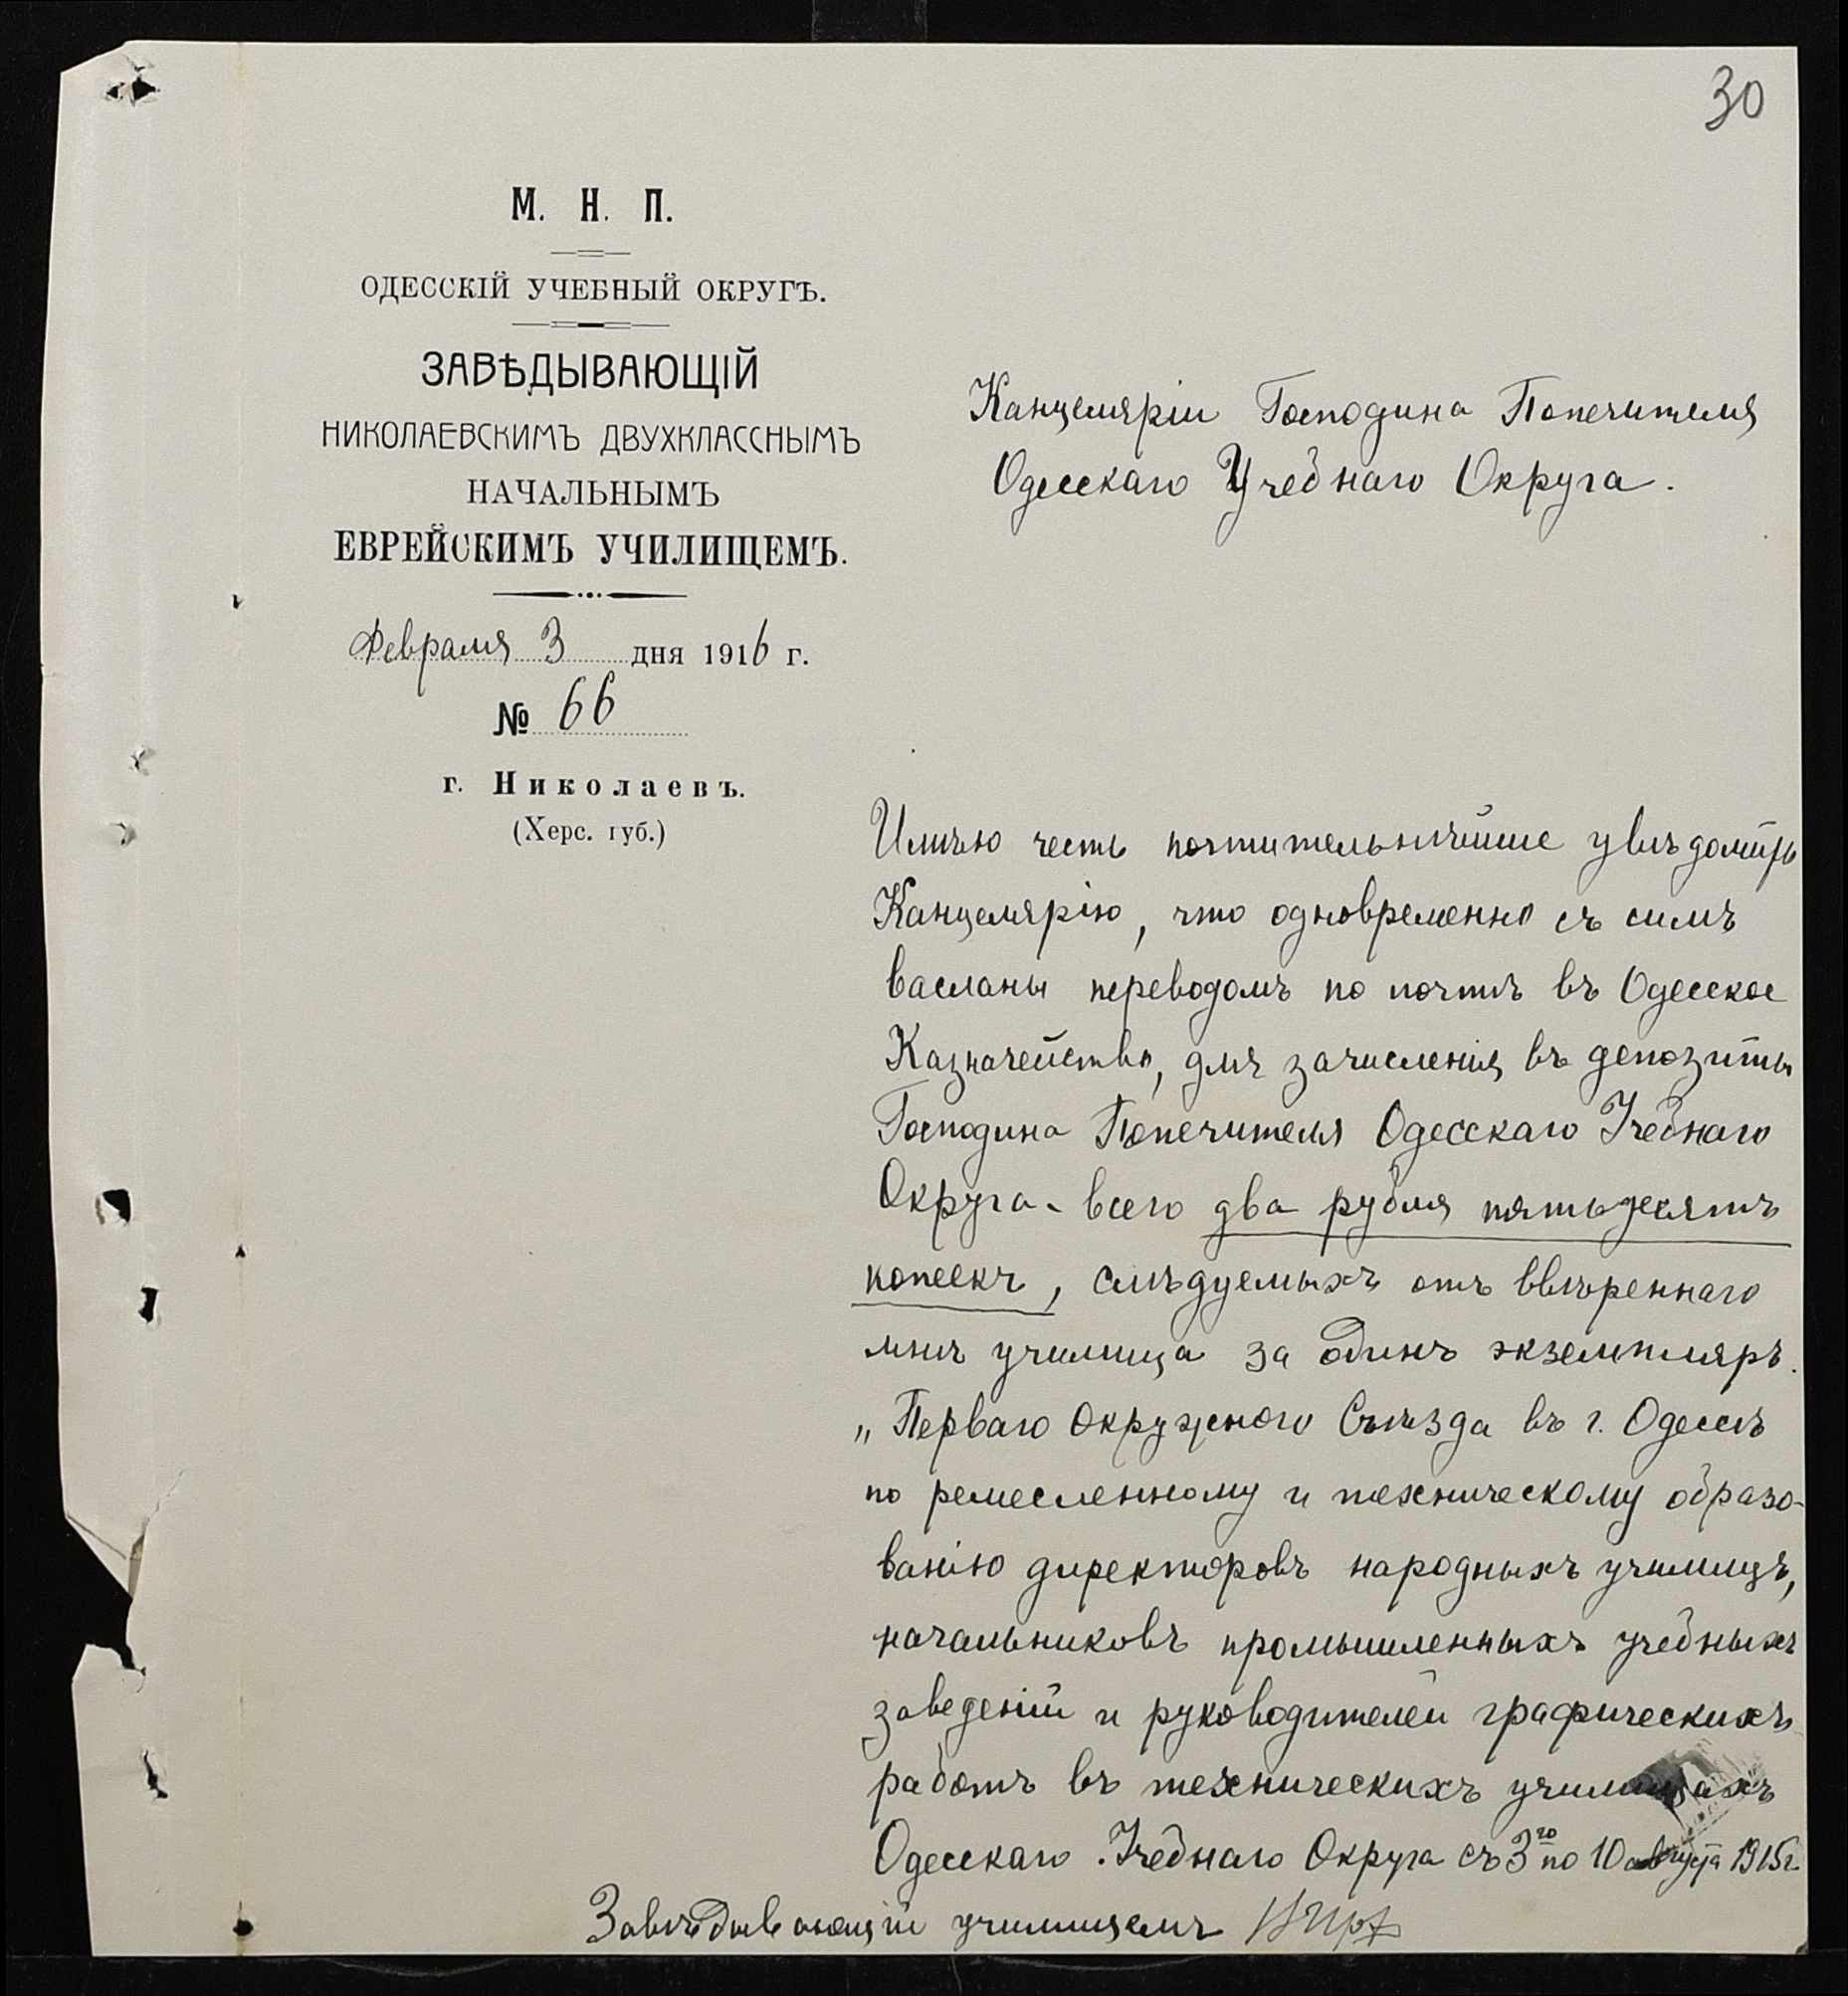 30
М. Н. П.
ОДЕССКІЙ УЧЕБНЫЙ ОКРУГЪ.
ЗАВѢДЫВАЮЩІЙ
НИКОЛАЕВСКИМЪ ДВУХКЛАССНЫМЪ
НАЧАЛЬНЫМЪ
ЕВРЕЙСКИМЪ УЧИЛИЩЕМЪ.
Февраля 3 дня 1916 г.
№ 66
г. Николаевъ.
(Херс. губ.)
Канцеляріи Господина Попечителя
Одесскаго Учебнаго Округа.
Имѣю честь почтительнѣйше увѣдомить
Канцелярію, что одновременно съ симъ
васланы переводомъ по почтѣ въ Одесское
Казначейство, для зачисленія въ депозиты
Господина Попечителя Одесскаго Учебнаго
Округа - всего два рубля пятьдесятъ
копеекъ, слѣдуемыхъ отъ ввѣреннаго
мнѣ училища за одинъ экземпляръ.
„Перваго Окружного Съѣзда въ г. Одессѣ
по ремесленному и техническому образо-
ванію директоровъ народныхъ училищъ,
начальниковъ промышленныхъ учебныхъ
заведеній и руководителей графическихъ
работъ въ техническихъ училищахъ
Одесскаго Учебнаго Округа съ 3го по 10 августа 1915г.
Завѣдывающій училищемъ